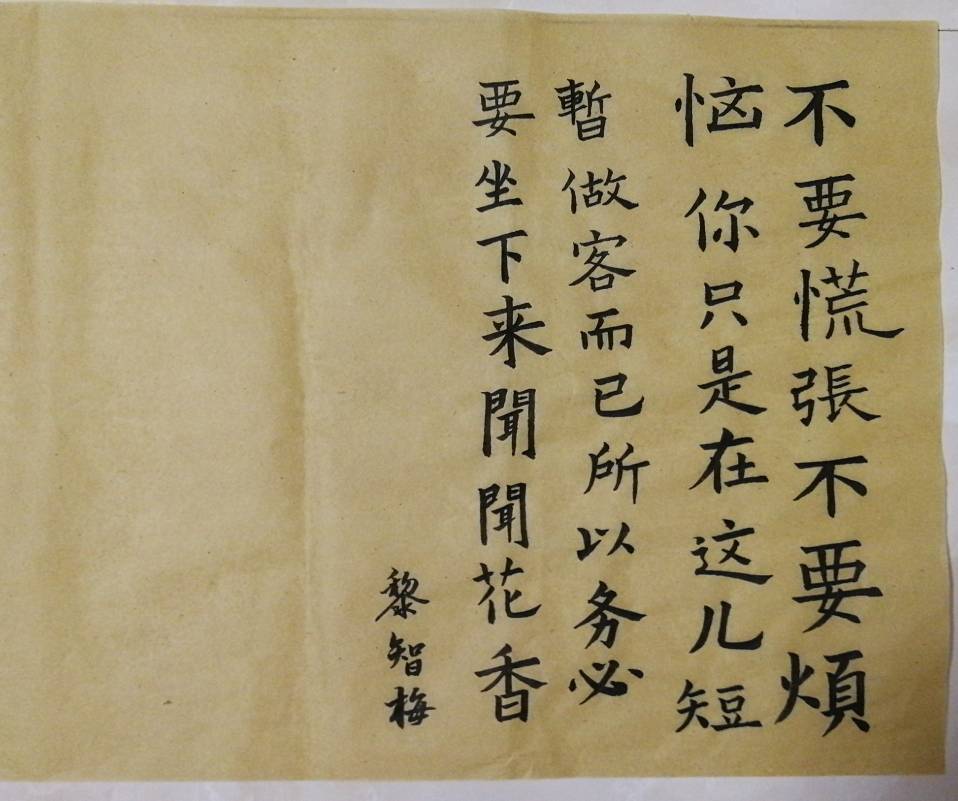 不要慌張不要煩
恼你只是在这儿短
暫做客而已所以务必
要坐下来聞聞花香
黎智梅